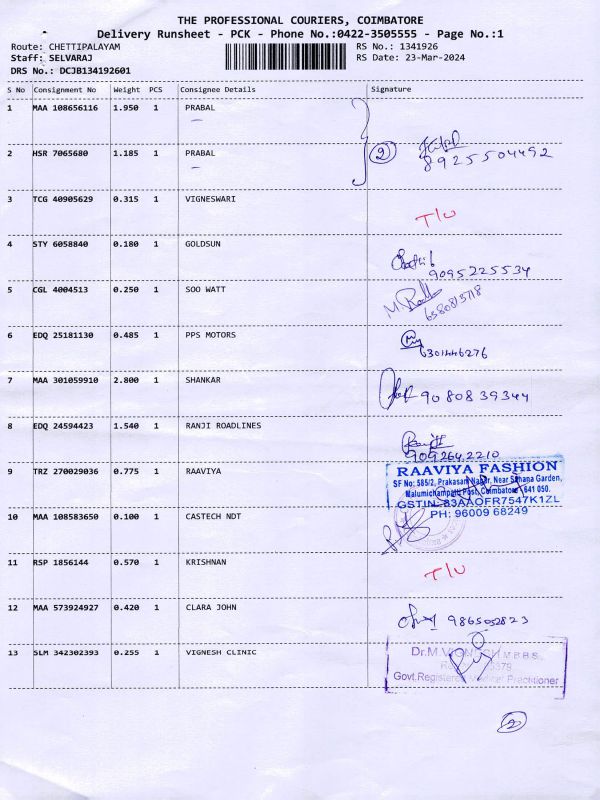 THE PROFESSIONAL COURIERS, COIMBATORE
Delivery Runsheet - PCK - Phone No.:0422-3505555 - Page No.:1
Route: CHETTIPALAYAM RS No.: 1341926
Staff: SELVARAJ RS Date: 23-Mar-2024
DRS No.: DCJB134192601
S No Consignment No Weight PCS Consignee Details Signature
1 MAA 108656116 1.950 1 PRABAL
2 HSR 7065680 1.185 1 PRABAL 2 8925504492
3 TCG 40905629 0.315 1 VIGNESWARI T/U
4 STY 6058840 0.180 1 GOLDSUN 9095225534
5 CGL 4004513 0.250 1 SOO WATT
6 EDQ 25181130 0.485 1 PPS MOTORS 6301446276
7 MAA 301059910 2.800 1 SHANKAR 9080839344
8 EDQ 24594423 1.540 1 RANJI ROADLINES 9092642210
9 TRZ 270029036 0.775 1 RAAVIYA RAAVIYA FASHION
SF No: 585/2, Prakasam Nagar, Near Sahana Garden,
Malumichampatti Post, Coimbatore - 641 050.
GSTIN: 33AAOFR7547K1ZL
PH: 96009 68249
10 MAA 108583650 0.100 1 CASTECH NDT
11 RSP 1856144 0.570 1 KRISHNAN T/U
12 MAA 573924927 0.420 1 CLARA JOHN
13 SLM 342302393 0.255 1 VIGNESH CLINIC Dr.M.VIGNESH M.B.B.S.,
Govt.Registered Medical Practitioner
2